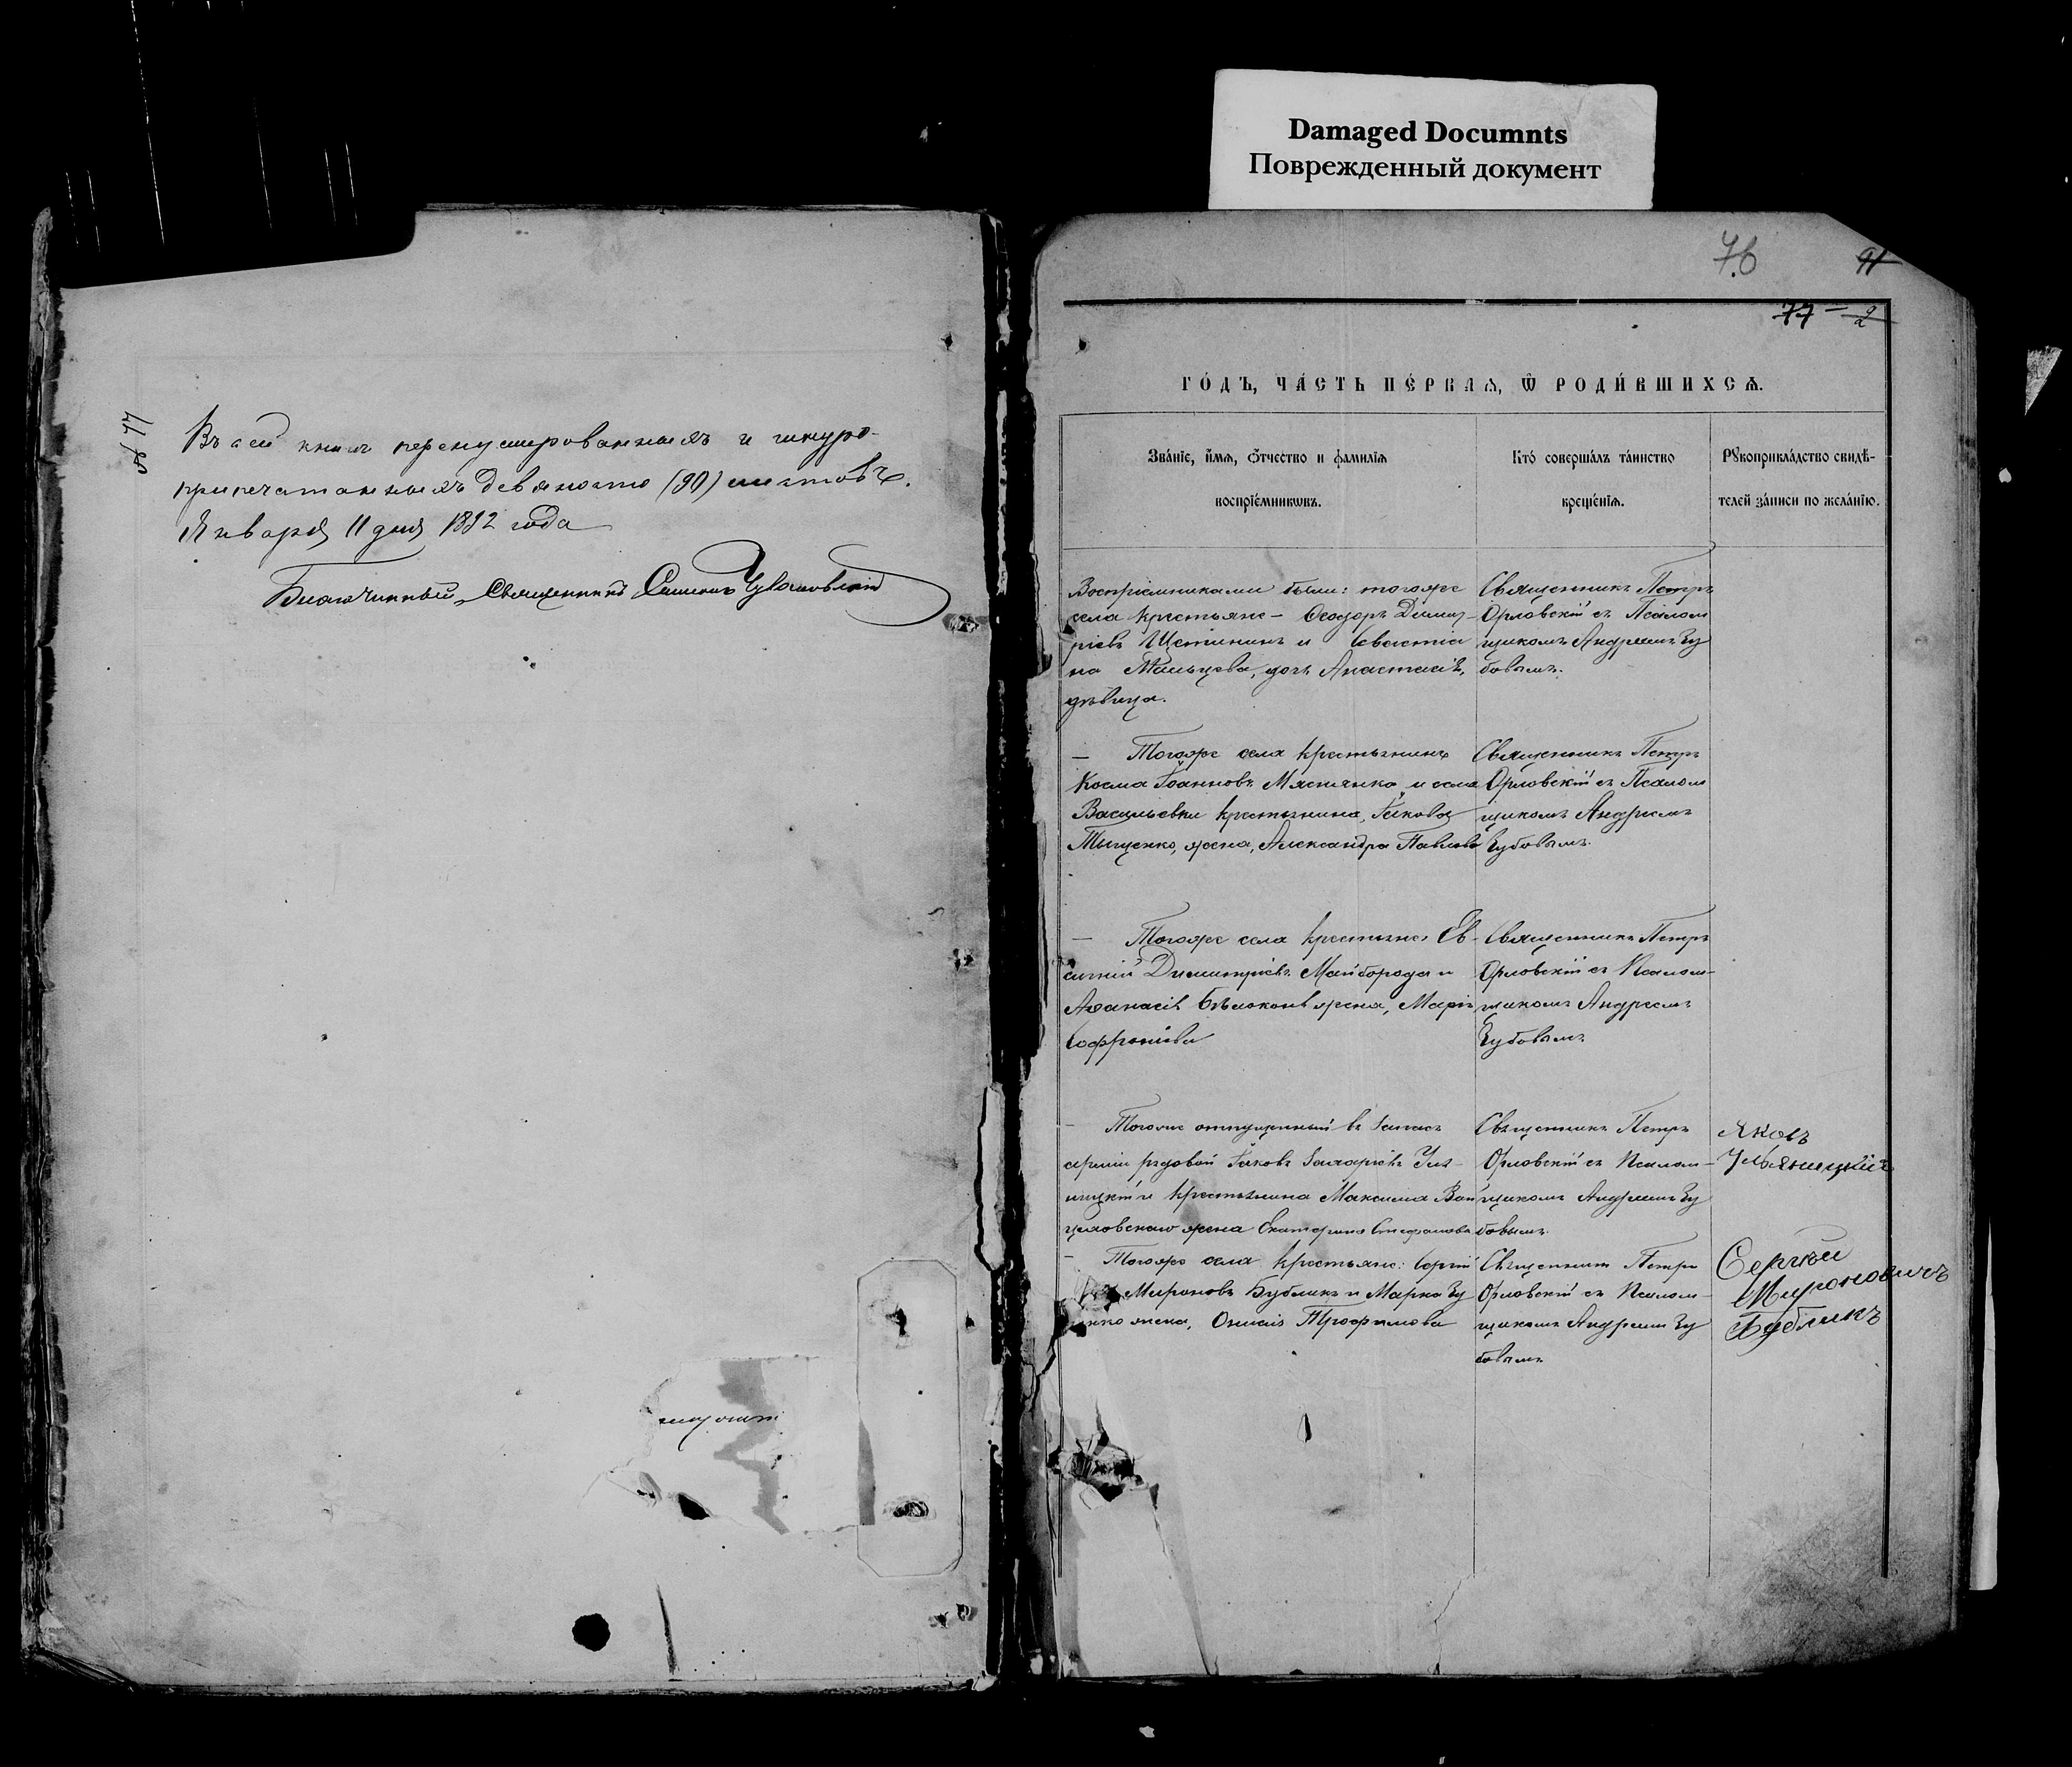 Damaged Documnts
Поврежденный документ
Въ сей книгѣ перенумерованныхъ и шнуро-
припечатанныхъ девяносто (90) листовъ.
Января 11 дня 1892 года
Благочинный, Священникъ
76
91
77
ГО́ДЪ, ЧА́СТЬ ПЕ́РВАѦ, Ѿ РОДИ́ВШИХСѦ.
Зва́нїе, и́мѧ, ѻ҆́тчество и фами́лїѧ
воспрїе́мникѡвъ.
Кто́ соверша́лъ та́инство
креще́нїѧ.
Рꙋкоприкла́дство свидѣ́-
телей за́писи по жела́нїю.
Воспріемниками были: тогоже
села крестьяне - Ѳеодоръ Димит
ріевъ Щетининъ и Севастіа
на Мальцева, дочь Анастасія,
дѣвица.
Священникъ Петръ
Орловскій съ Псалом
щикомъ Андреемъ Зу
бовымъ.
— Тогоже села крестьянинъ
Косма Іоанновъ Мясненко и села
Васильевки крестьянина, Іакова
Тыщенко, жена, Александра Павлова
Священникъ Петръ
Орловскій съ Псалом
щикомъ Андреемъ
Зубовымъ.
— Тогоже села крестьяне: Ев-
сигній Димитріевъ Майборода и
Аѳанасія Бѣлоконя жена, Марія
Софроніева
Священникъ Петръ
Орловскій съ Псалом-
щикомъ Андреемъ
Зубовымъ
— Тогоже отпущенный въ запасъ
арміи рядовой Іаковъ Захаріевъ Уль-
ницкій и крестьянина Максима Вой
цеховскаго жена Екатерина Стефанова
Священникъ Петръ
Орловскій съ Псалом-
щикомъ Андреемъ Зу
бовымъ.
Яковъ
— Тогоже села крестьяне: Сергій
Мироновъ Бубликъ и Марка Зу
нко жена, Онисія Трофимова
Священникъ Петръ
Орловскій съ Псалом-
щикомъ Андреемъ Зу
бовымъ
Сергѣй
Мироновичъ
Бубликъ